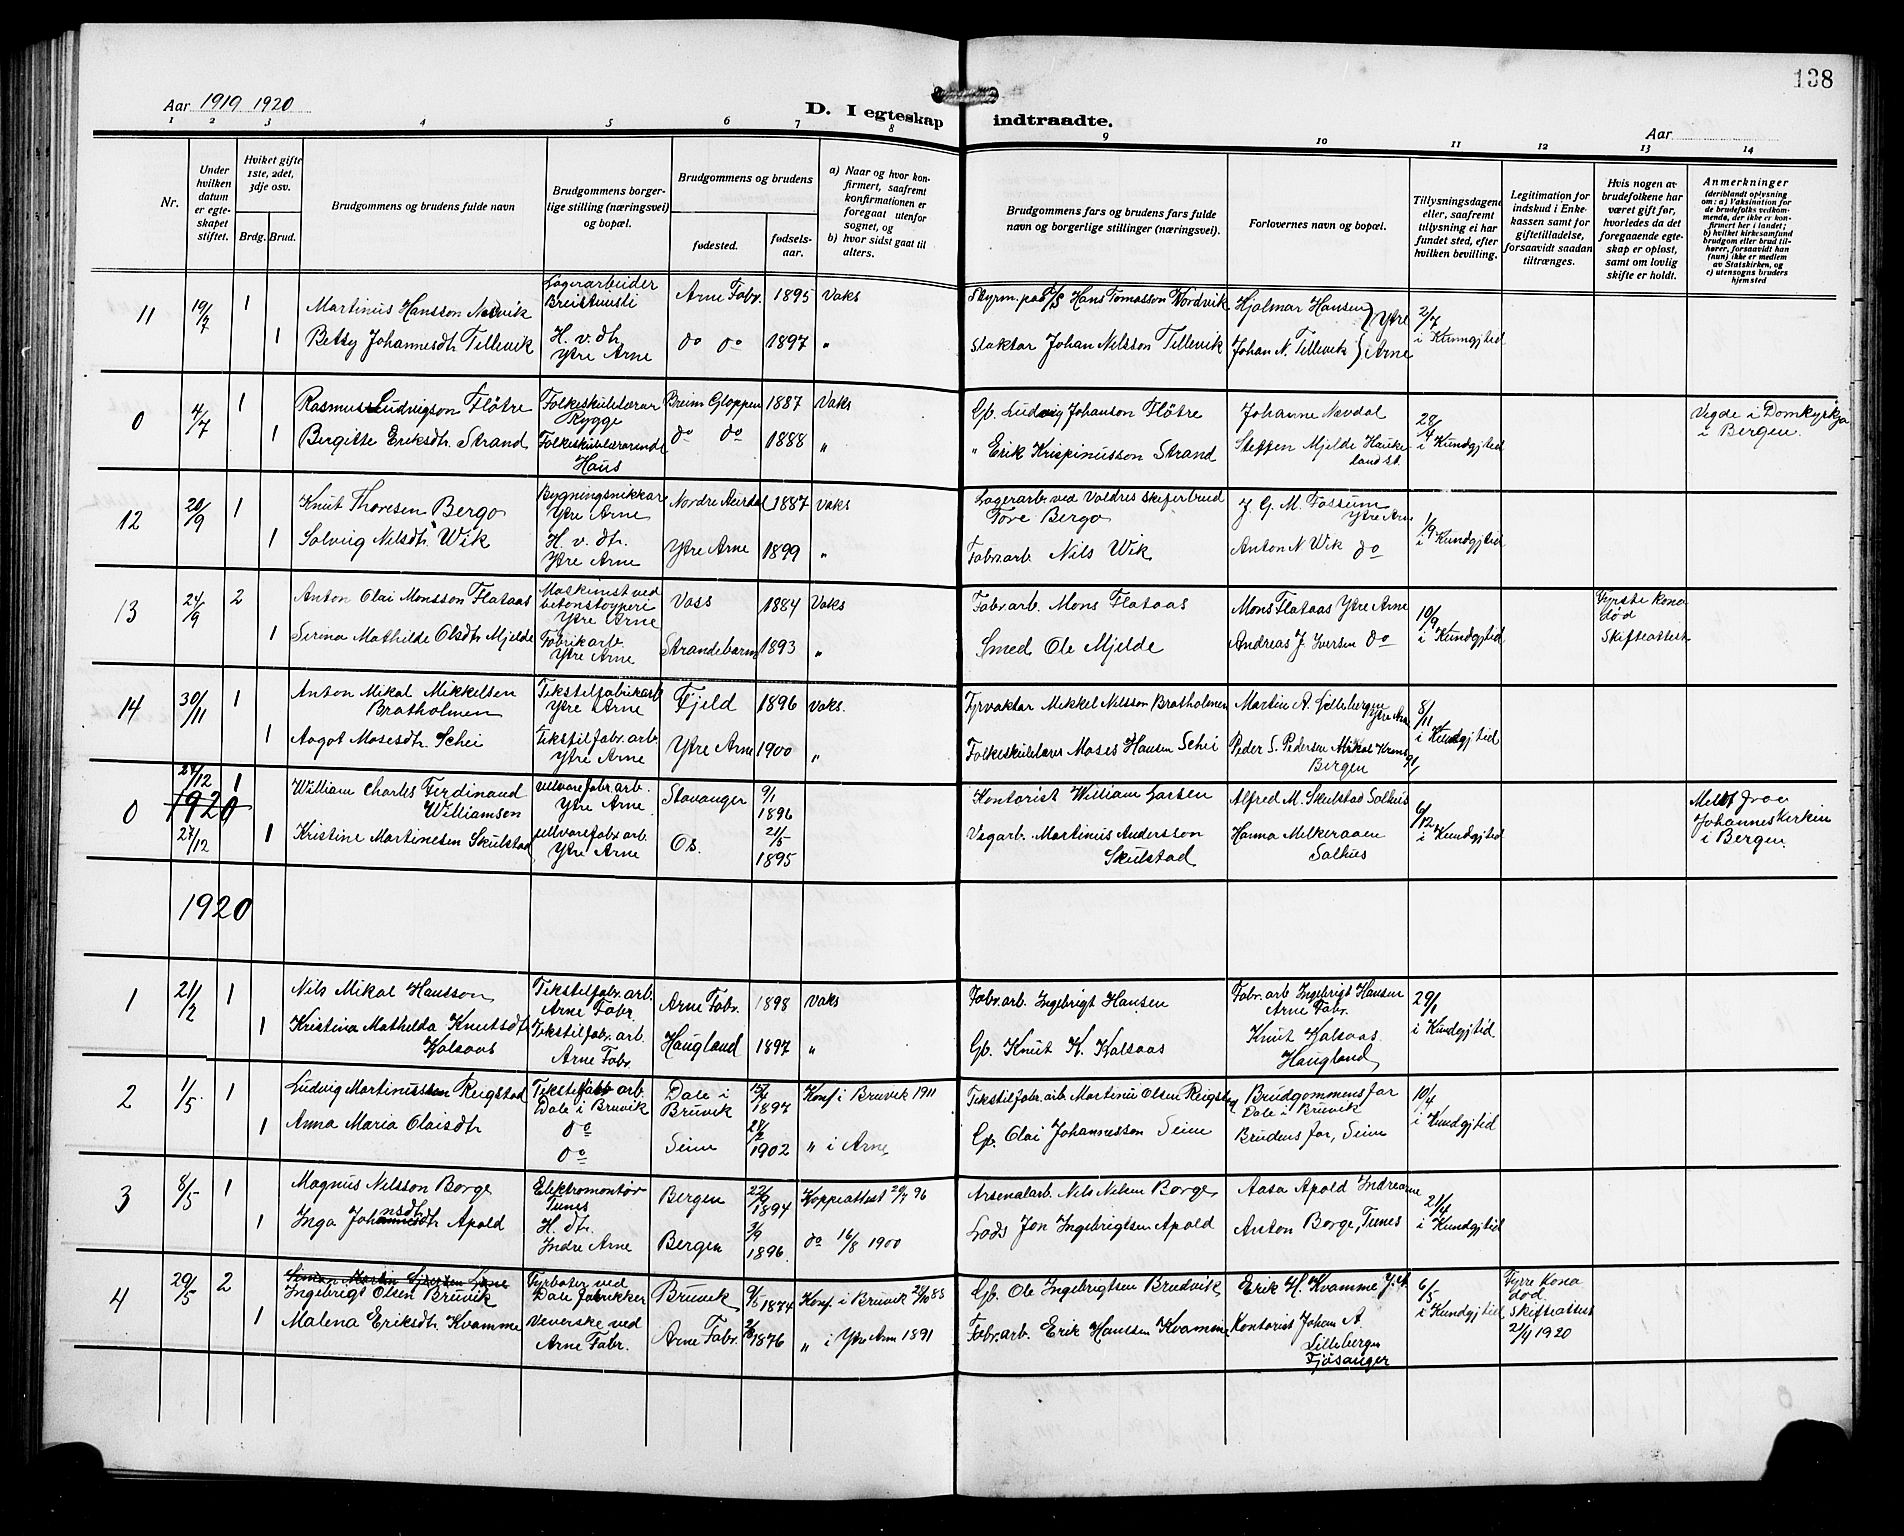 138
Aar 1919 1920
D. I egteskap indtraadte.
Aar
1 2 3 4 5 6 7 8 9 10 11 12 13 14
Nr.
Under hvilken datum er egteskapet stiftet.
Hviket gifte 1ste, 2det, 3dje osv.
Brdg. Brud.
Brudgommens og brudens fulde navn
Brudgommens borgerlige stilling (næringsvei) og bopæl.
Brudgommens og brudens
fødested.
fødselsaar.
a) Naar og hvor konfirmert, saafremt konfirmationen er foregaat utenfor sognet, og
b) hvor sidst gaat til alters.
Brudgommens fars og brudens fars fulde navn og borgerlige stillinger (næringsvei).
Forlovernes navn og bopæl.
Tillysningsdagene eller, saafremt tillysning ei har fundet sted, efter hvilken bevilling.
Legitimation for indskud i Enkekassen samt for giftetilladelse, forsaavidt saadan tiltrænges.
Hvis nogen av brudefolkene har været gift før, hvorledes da det foregaaende egteskap er opløst, samt om lovlig skifte er holdt.
Anmerkninger
(deriblandt oplysning om: a) Vaksination for de brudefolks vedkommende, der ikke er konfirmert her i landet; b) hvilket kirkesamfund brudgom eller brud tilhører, forsaavidt han (hun) ikke er medlem av Statskirken, og c) utensogns bruders hjemsted
11 19/7 1 Martinus Hansson Nordvik Lagerarbeider Breistensli Arne Fabr. 1895 Vaks Hans Tomasson Nordvik Hjalmar Hansen } Ytre 2/7
1 Betsy Johannesdtr Tellevik H. v. dtr Ytre Arne do do 1897 " Slaktar Johan Nilsson Tellevik Johan N. Tellevik } Arne i Kunngjtid
0 4/7 1 Rasmus Ludvigson Fløtre Folkeskulelærar Rygge Breim Gloppen 1887 Vaks Gb. Ludvig Johanson Fløtre Johanne Nevdal 28/4 Vigde i Domkyrkja
1 Bergitte Eriksdtr. Strand Folkeskulelærarende Haus do do 1888 " " Erik Krispinusson Strand Steffen Mjelde Haukeland st. i Kundgjtid i Bergen.
12 20/9 1 Knut Thoresen Bergo Bygningsnikkar Ytre Arne Nordre Aurdal 1887 Vaks Lagerarb. ved Valdres skiferbrud Tore Bergo J. G. M. Fossum Ytre Arne 1/9
1 Solvig Nilsdtr. Wik H. v. dtr. Ytre Arne Ytre Arne 1899 " Fabr.arb. Nils Wik Anton N Wik do i Kundgjtid
13 24/9 2 Anton Olai Monsson Flataas Maskinist ved betonstoyperi Ytre Arne Voss 1884 Vaks Fabr.arb. Mons Flataas Mons Flataas Ytre Arne 10/9 Fyrste kona død
1 Serina Mathilde Olsdtr Mjelde Fabrikarb Ytre Arne Strandebarm 1893 " Smed Ole Mjelde Andreas J. Iversen do i Kundgjtid Skifteattest
14 30/11 1 Anton Mikal Mikkelsen Bratholmen Tekstilfabrikarb Ytre Arne Fjeld 1896 Vaks. Fyrvaktar Mikkel Nilsson Bratholmen Martin A. Lillebergen Ytre Arne 8/11
1 Aagot Mosesdtr Schei Tekstilfabr.arb. Ytre Arne Ytre Arne 1900 " Folkeskulelærer Moses Hansen Schei Peder S. Pedersen Mikal Krons Bergen i Kundgjtid
0 27/12 1 William Charles Ferdinand Williamson Ullvarefabr.arb. Ytre Arne Stavanger 9/1 1896 Kontorist William Larsen Alfred M. Skulstad Salhus 6/12
1920
27/12 1 Kristine Martinesen Skulstad Ullvarefabr.arb. Ytre Arne Os. 21/5 1895 Vegarb. Martinus Andersson Skulstad Hanna Melkeraaen Salhus i Kundgjtid Johanneskirken i Bergen.
1920
1 21/2 1 Nils Mikal Hansson Tekstilfabr.arb. Arne Fabr. Arne Fabr. 1898 Vaks Fabr.arb. Ingebrigt Hansen Fabr.arb Ingebrigt Hansen Arne Fabr. 29/1
1 Kristina Mathilda Knutsdtr Kalsaas Tekstilfabr.arb. Arne Fabr. Haugland 1897 " Gb. Knut K. Kalsaas Knut Kalsaas Haugland i Kundgjtid
2 1/5 1 Ludvig Martinussen Reigstad Tekstilfabr.arb. Dale i Bruvik Dale i Bruvik 1897 Konf. i Bruvik 1911 Tekstilfabr.arb. Martinus Olsen Reigstad Brudgommens far Dale i Bruvik 10/4
1 Anna Maria Olaisdtr do do Seim 24/2 1902 " i Arne Gb. Olai Johannesson Seim Brudens far, Seim i Kundgjtid
3 8/5 1 Magnus Nilsson Borge Elektromontør Tunes Bergen 22/9 1894 Koppeattest 20/7 96 Arsenalarb. Nils Nilsen Borge Aasa Apold Indrearne 21/4
1 Inga Johannesdtr nsdtr Apold H. dtr. Indre Arne Bergen 3/9 1896 do 16/8 1900 Lods Jon Ingebrigtsen Apold Anton Borge, Tunes i Kundgjtid
4 29/5 2 Ingebrigt Olsen Bruvik Fyrbøter ved Dale fabrikker Bruvik 9/5 1874 Konf. i Bruvik Gb. Ole Ingebrigtsen Brudvik Erik H. Kvamme Y.A 6/5 Fyrre kona død
1 Malena Eriksdtr Kvamme Veverske ved Arne Fabr. Arne Fabr. 1876 " i Ytre Arne 1891 Fabr.arb. Erik Hanssen Kvamme Kontorist Johan A. Lillebergen Fjøsanger i Kundgjtid Skifteattest 21/1 1920